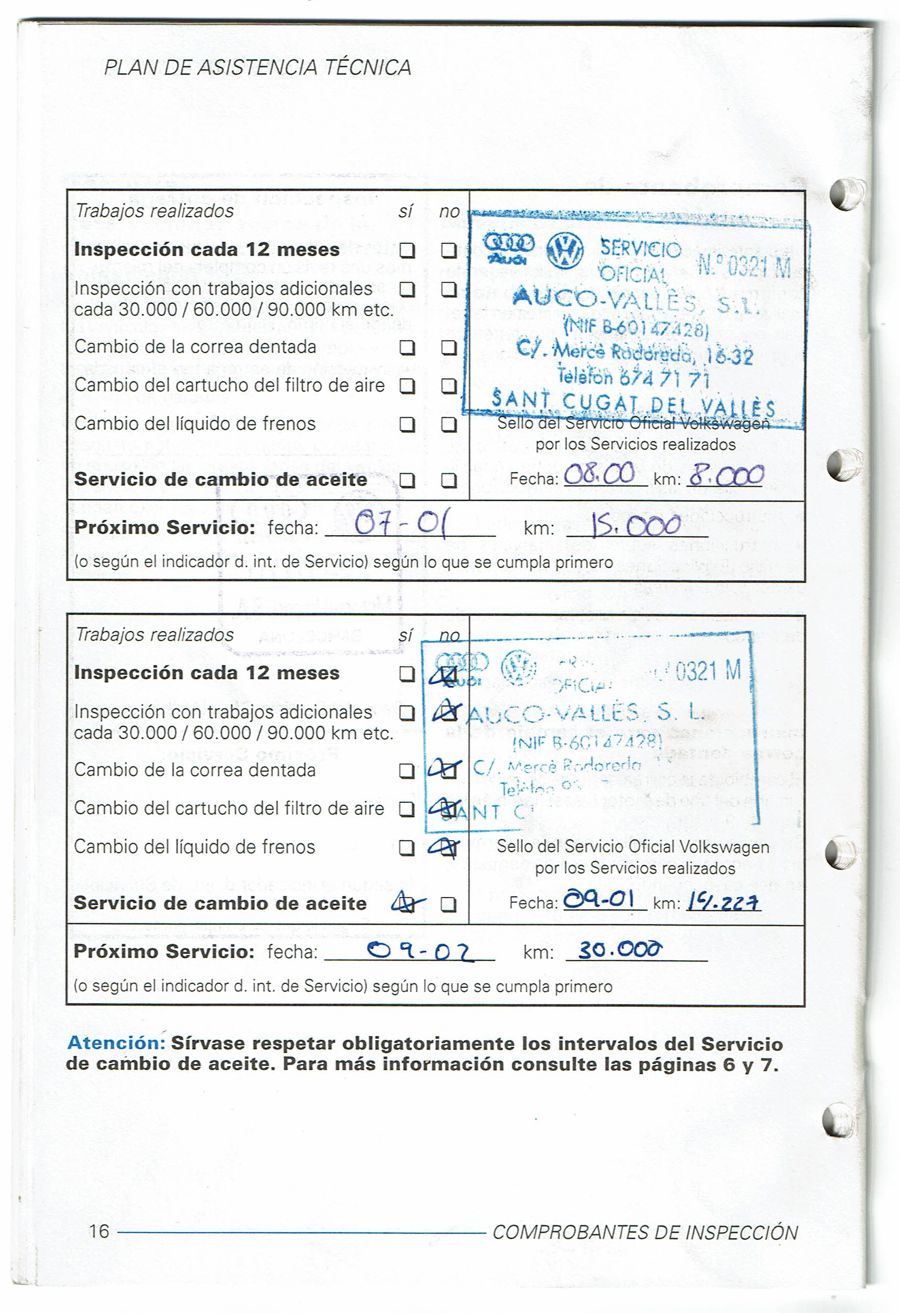 PLAN DE ASISTENCIA TÉCNICA
Trabajos realizados sí no
Inspección cada 12 meses
Inspección con trabajos adicionales
cada 30.000 / 60.000 / 90.000 km etc.
Cambio de la correa dentada
Cambio del cartucho del filtro de aire
Cambio del líquido de frenos
Servicio de cambio de aceite
Audi SERVICIO
OFICIAL N.º 0321 M
AUCO-VALLÈS, S.L.
(NIF B-60147428)
C/. Mercè Rodoreda, 16-32
Telèfon 674 71 71
SANT CUGAT DEL VALLÈS
Sello del Servicio Oficial Volkswagen
por los Servicios realizados
Fecha: 08.00 km: 8.000
Próximo Servicio: fecha: 07-01 km: 15.000
(o según el indicador d. int. de Servicio) según lo que se cumpla primero
Trabajos realizados sí no
Inspección cada 12 meses
Inspección con trabajos adicionales
cada 30.000 / 60.000 / 90.000 km etc.
Cambio de la correa dentada
Cambio del cartucho del filtro de aire
Cambio del líquido de frenos
Servicio de cambio de aceite
0321 M
AUCO-VALLÈS, S. L.
(NIF B-60147428)
C/. Mercè Rodoreda
SANT
Sello del Servicio Oficial Volkswagen
por los Servicios realizados
Fecha: 09-01 km:
Próximo Servicio: fecha: 09-02 km: 30.000
(o según el indicador d. int. de Servicio) según lo que se cumpla primero
Atención: Sírvase respetar obligatoriamente los intervalos del Servicio
de cambio de aceite. Para más información consulte las páginas 6 y 7.
16 COMPROBANTES DE INSPECCIÓN